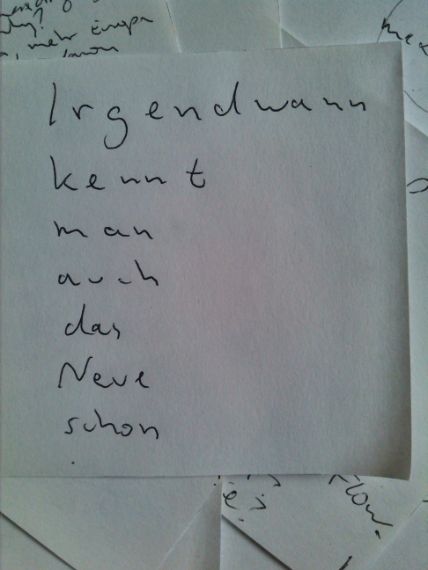 mehr Europa
Irgendwann
kennt
man
auch
das
Neue
schon
.